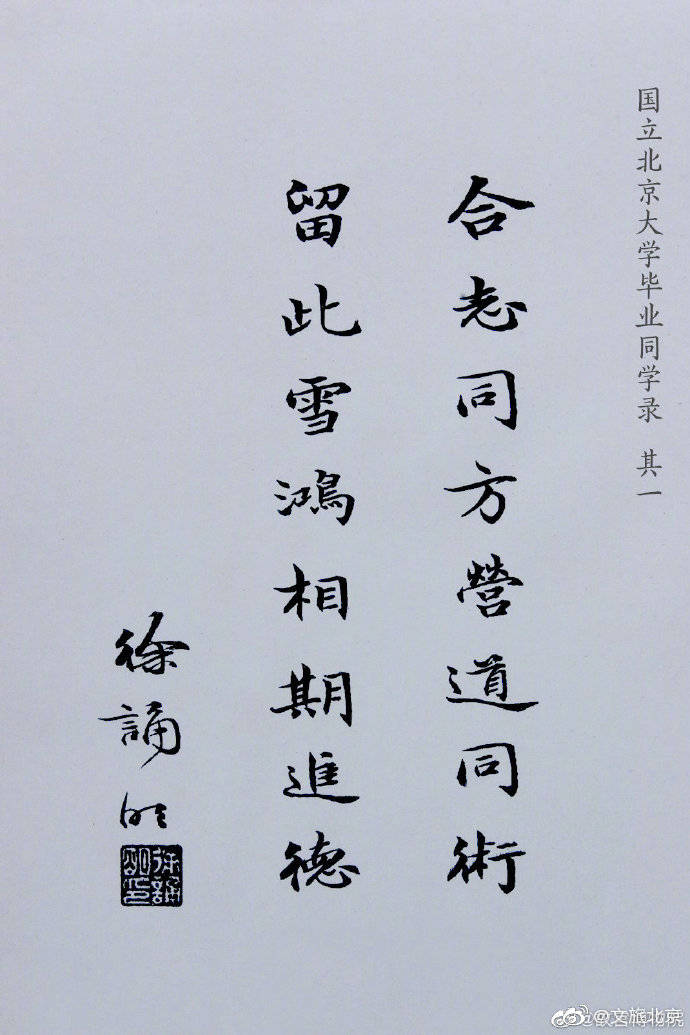 国立北京大学毕业同学录 其一
合志同方營道同術
留此雪鴻相期進德
徐誦明
@文旅北京